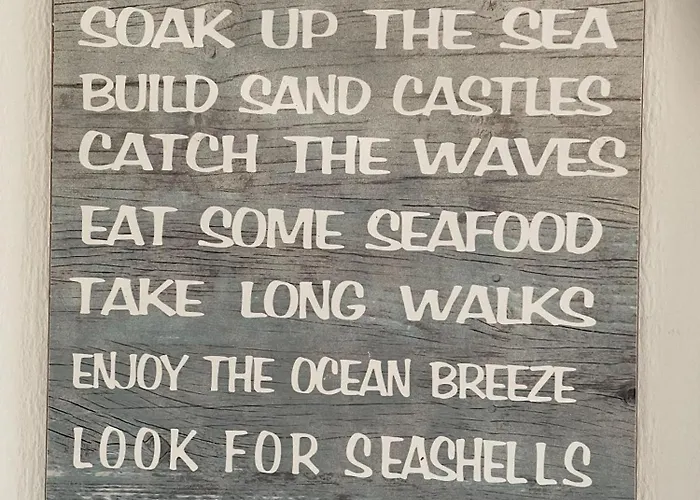 SOAK UP THE SEA
BUILD SAND CASTLES
CATCH THE WAVES
EAT SOME SEAFOOD
TAKE LONG WALKS
ENJOY THE OCEAN BREEZE
LOOK FOR SEASHELLS